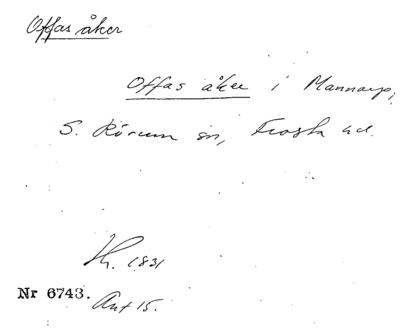 Offas åker
Offas åker i Mannarp,
S. Rörum sn, Frosta hd.
Hh. 1831
Nr 6743.
Ant 15.